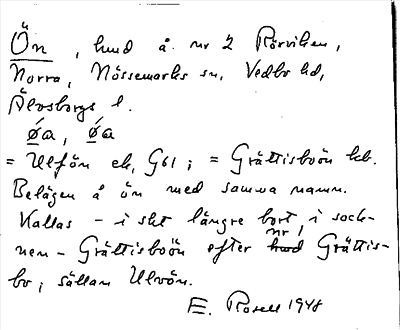 Ön, hmd å nr 2 Rörviken,
Norra, Nössemarks sn, Vedbo hd,
Älvsborgs l.
øa, øa
= Ulfön ek, G61; = Grättisboön kb.
Belägen å ön med samma namn.
Kallas - i skt längre bort, i sock-
nen - Grättisboön efter nr Grättis-
bo, sällan Ulvön.
E. Rosell 1948